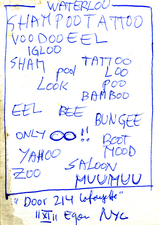 WATERLOO
SHAMPOO TATTOO
VOODOO EEL
IGLOO
SHAM TATTOO
pool LOO
LOOK POO
BAMBOO
EEL BEE
BUNGEE
ONLY OO !!
ROOT
YAHOO MOOD
ZOO SALOON
MUUMUU
"Door 214 Lafayette"
"XI" Egan NYC